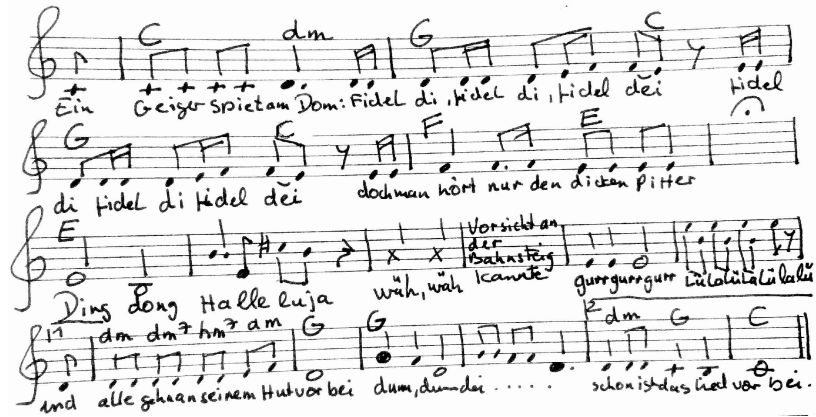 C dm G C
Ein Geiger spielt am Dom: Fidel di, fidel di, fidel dei fidel
G C F E
di fidel di fidel dei doch man hört nur den dicken Pitter
E Vorsicht an der Bahnsteig Kannte
Ding dong Halleluja wäh, wäh gurr gurr gurr Lülalülalülalü
1 dm dm7 hm7 am G G 2 dm G C
und alle gehn an seinem Hut vorbei dum, dum dei ..... schon ist das Lied vorbei.